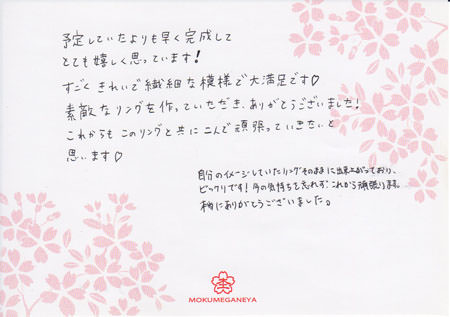 予定していたよりも早く完成して
とても嬉しく思っています!
すごくきれいで繊細な模様で大満足です♡
素敵なリングを作っていただき、ありがとうございました!
これからもこのリングと共に二人で頑張っていきたいと
思います♡
自分のイメージしていたリングそのままに出来上がっており、
ビックリです!今の気持ちを忘れず、これから頑張ります。
本当にありがとうございました。
MOKUMEGANEYA